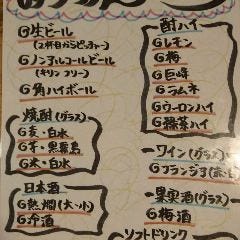 G生ビール
(2杯目からピッチャー)
Gノンアルコールビール
(キリン フリー)
G角ハイボール
焼酎(グラス)
G麦・白水
G芋・黒霧島
G米・白水
日本酒
G熱燗(大・小)
G冷酒
酎ハイ
Gレモン
G梅
G巨峰
Gラムネ
Gウーロンハイ
G緑茶ハイ
ワイン(グラス)
Gフランジア(赤・白)
果実酒(グラス)
G梅酒
ソフトドリンク